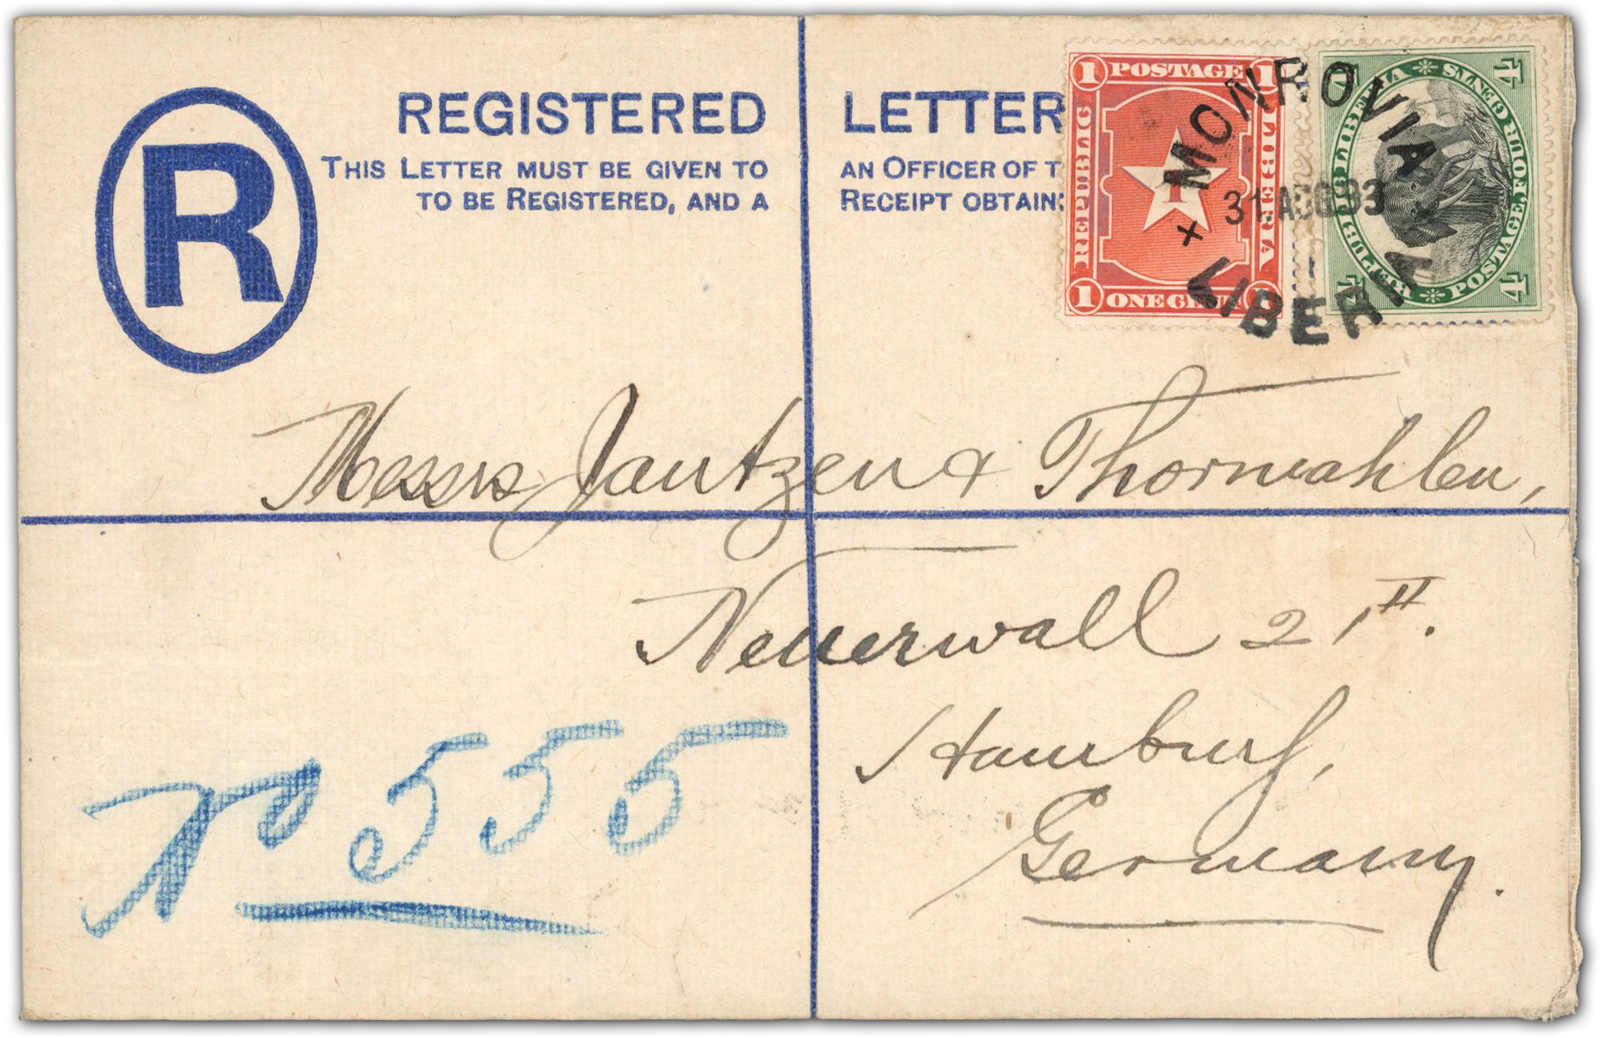 R
REGISTERED LETTER
THIS LETTER MUST BE GIVEN TO AN OFFICER OF T
TO BE REGISTERED, AND A RECEIPT OBTAIN
1 POSTAGE 1
REPUBLIC
LIBERIA
1
1 ONE CENT 1
4 REPUBLIC LIBERIA 4
4 POSTAGE, FOUR CENTS 4
MONROVIA
31 AUG 93
LIBERIA
Messrs Jantzen & Thormahlen,
Neuerwall 21 II.
Hamburg,
Germany.
No 555